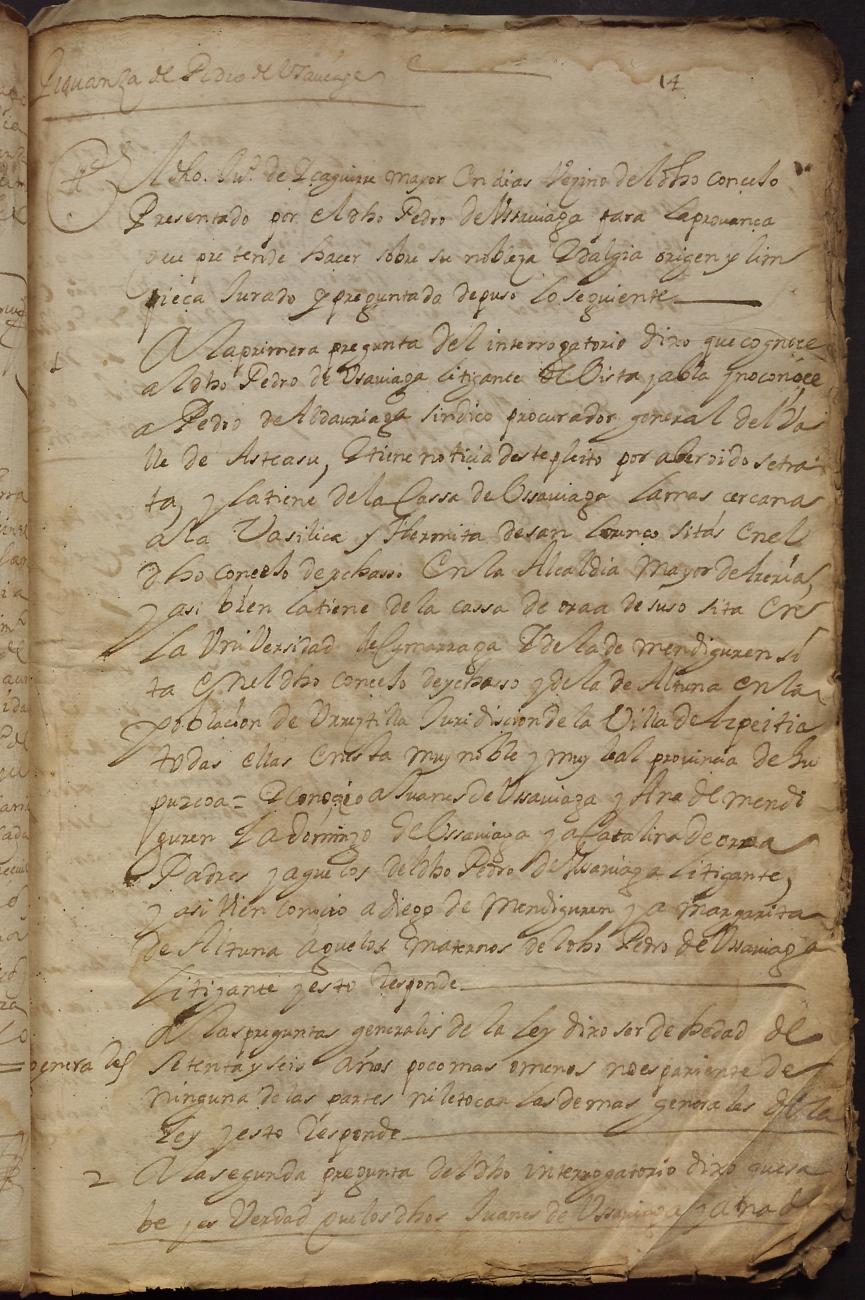 Prouanza de Pedro de Usauiaga
14
El dho. Juº. de Yçaguirre mayor en dias Vezino del dho conçejo
Presentado por el dho Pedro de Ussauiaga para la prouança
que pretende hacer sobre su nobleza Ydalgia origen y lim
pieça Jurado y preguntado depuso lo seguiente
1 A la primera pregunta del interrogatorio dixo que cognoçe
al dho Pedro de Usauiaga litigante de Vista y abla y no conoçe
a Pedro de Aldauriaga sindico procurador general del Va
lle de Asteasu, Y tiene noticia deste pleito por aber oido se tra
ta, y la tiene de la Cassa de Ossauiaga la mas cercana
a la Vasilica y Hermita de san Lorenço sitas en el
dho conçejo de ychasso En la Alcaldia Mayor de Areria,
y asi bien la tiene de la cassa de oraa de suso sita en
la Vniversidad de Cumarraga Y de la de mendiguren si
ta en el dho conçejo de ychaso y de la de Altuna en la
poblaçion de Vrrystilla Juridiscion de la Villa de Azpeitia
todas ellas en esta muy noble y muy leal provinçia de Gui
puzcoa = Y Conoçio a Juanes de Ussauiaga y Ana de mendi
guren Y a domingo de Ossauiaga y a Catalina de oraa
Padres y aguelos del dho Pedro de Usauiaga litigante,
y asi Vien conoçio a diego de Mendiguren y a Margarita
de Altuna aguelos maternos de lo dho Pedro de Ussauiaga
Litigante y esto Responde
generales A las preguntas generales de la Ley dixo ser de hedad de
setenta y seis años poco mas o menos no es pariente de
ninguna de las partes ni le tocan las demas generales de la
Ley y esto Responde
2 A la segunda pregunta del dho interrogatorio dixo que sa
be y es Verdad que los dhos Juanes de Ussauiaga y Ana de